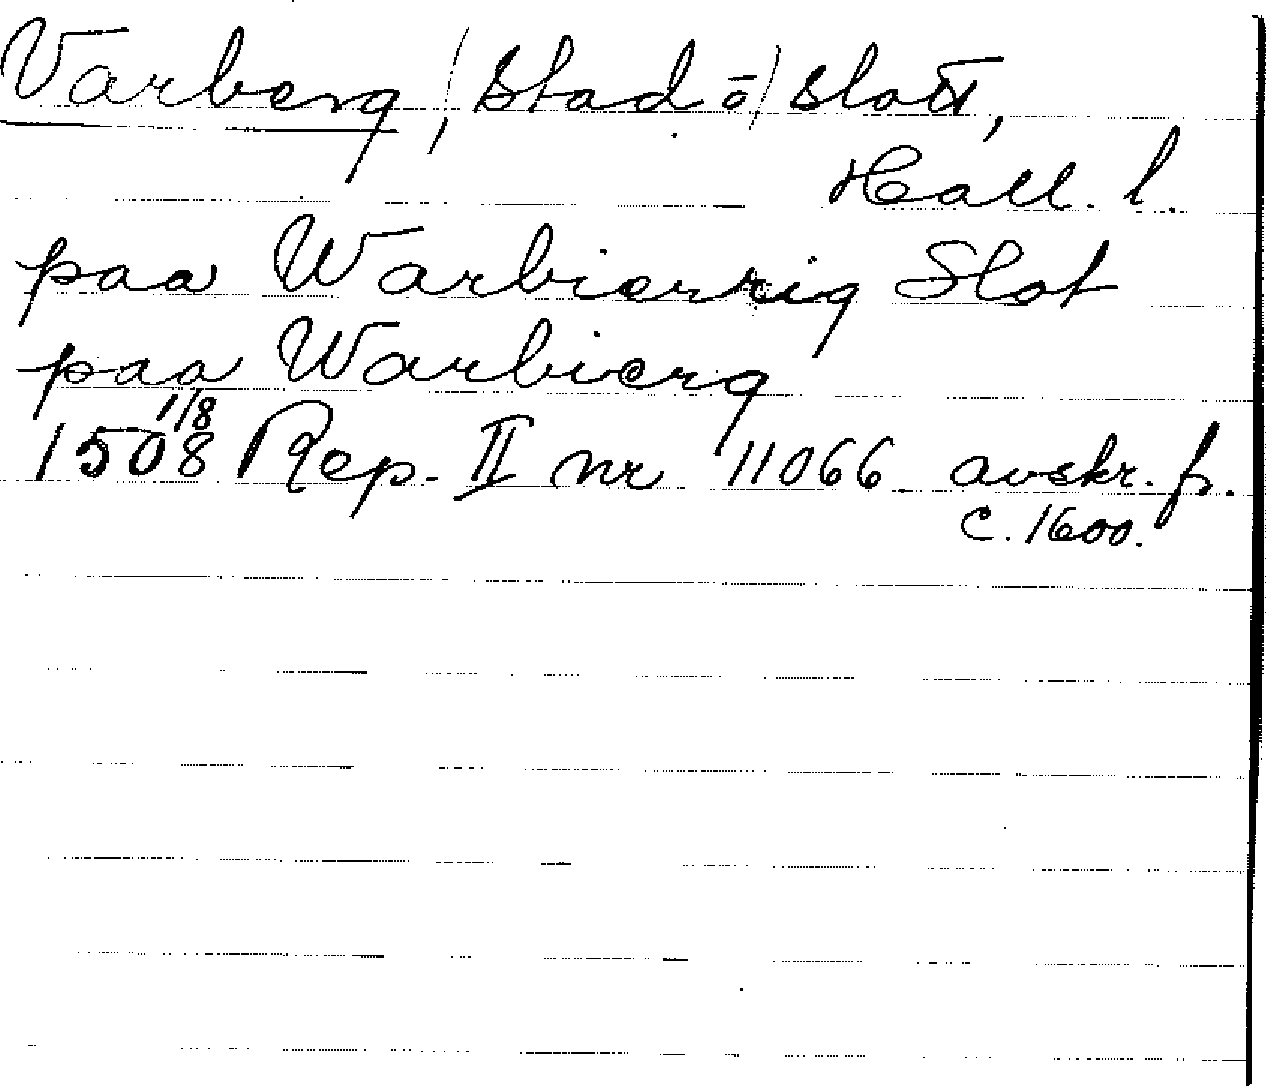 Varberg, (Stad o) slott,
Hall. l.
paa Warbierrig Slot
paa Warbierg
1508 1/8 Rep. II nr 11066 avskr. fr.
c. 1600.